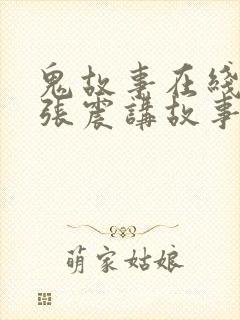 鬼故事在綫
張震講故事
萌家姑娘